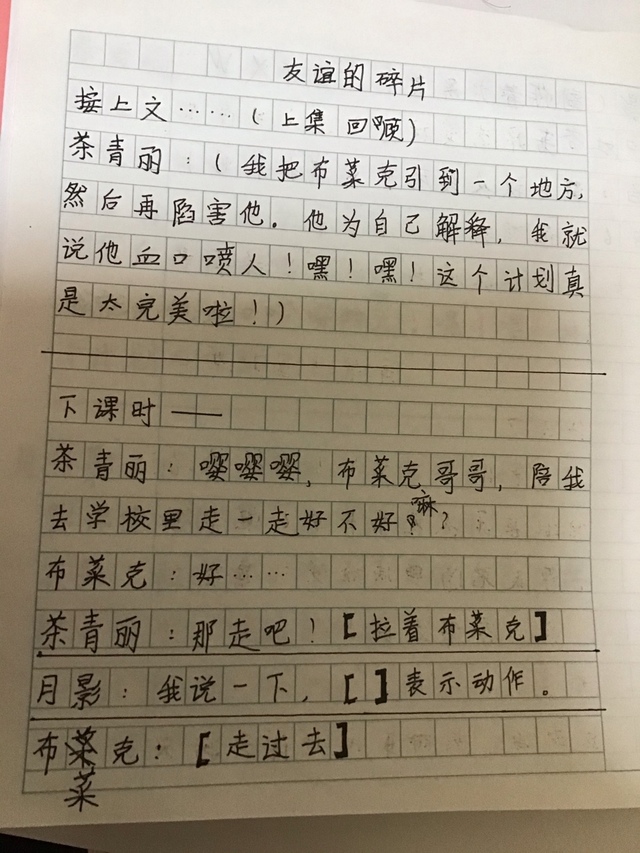 友谊的碎片
接上文……（上集回顾）
茶青丽：（我把布莱克引到一个地方，
然后再陷害他。他为自己解释，我就
说他血口喷人！嘿！嘿！这个计划真
是太完美啦！）
下课时——
茶青丽：嘤嘤嘤，布莱克哥哥，陪我
去学校里走一走好不好嘛？
布莱克：好……
茶青丽：那走吧！【拉着布莱克】
月影：我说一下，【】表示动作。
布莱克：【走过去】